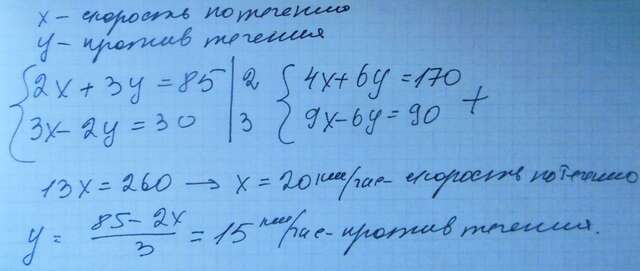 x - скорость по течению
y - против течения
{ 2x + 3y = 85 | 2 { 4x + 6y = 170
{ 3x - 2y = 30 | 3 { 9x - 6y = 90 +
13x = 260 → x = 20 км/час - скорость по течению
y = (85 - 2x)/3 = 15 км/час - против течения.